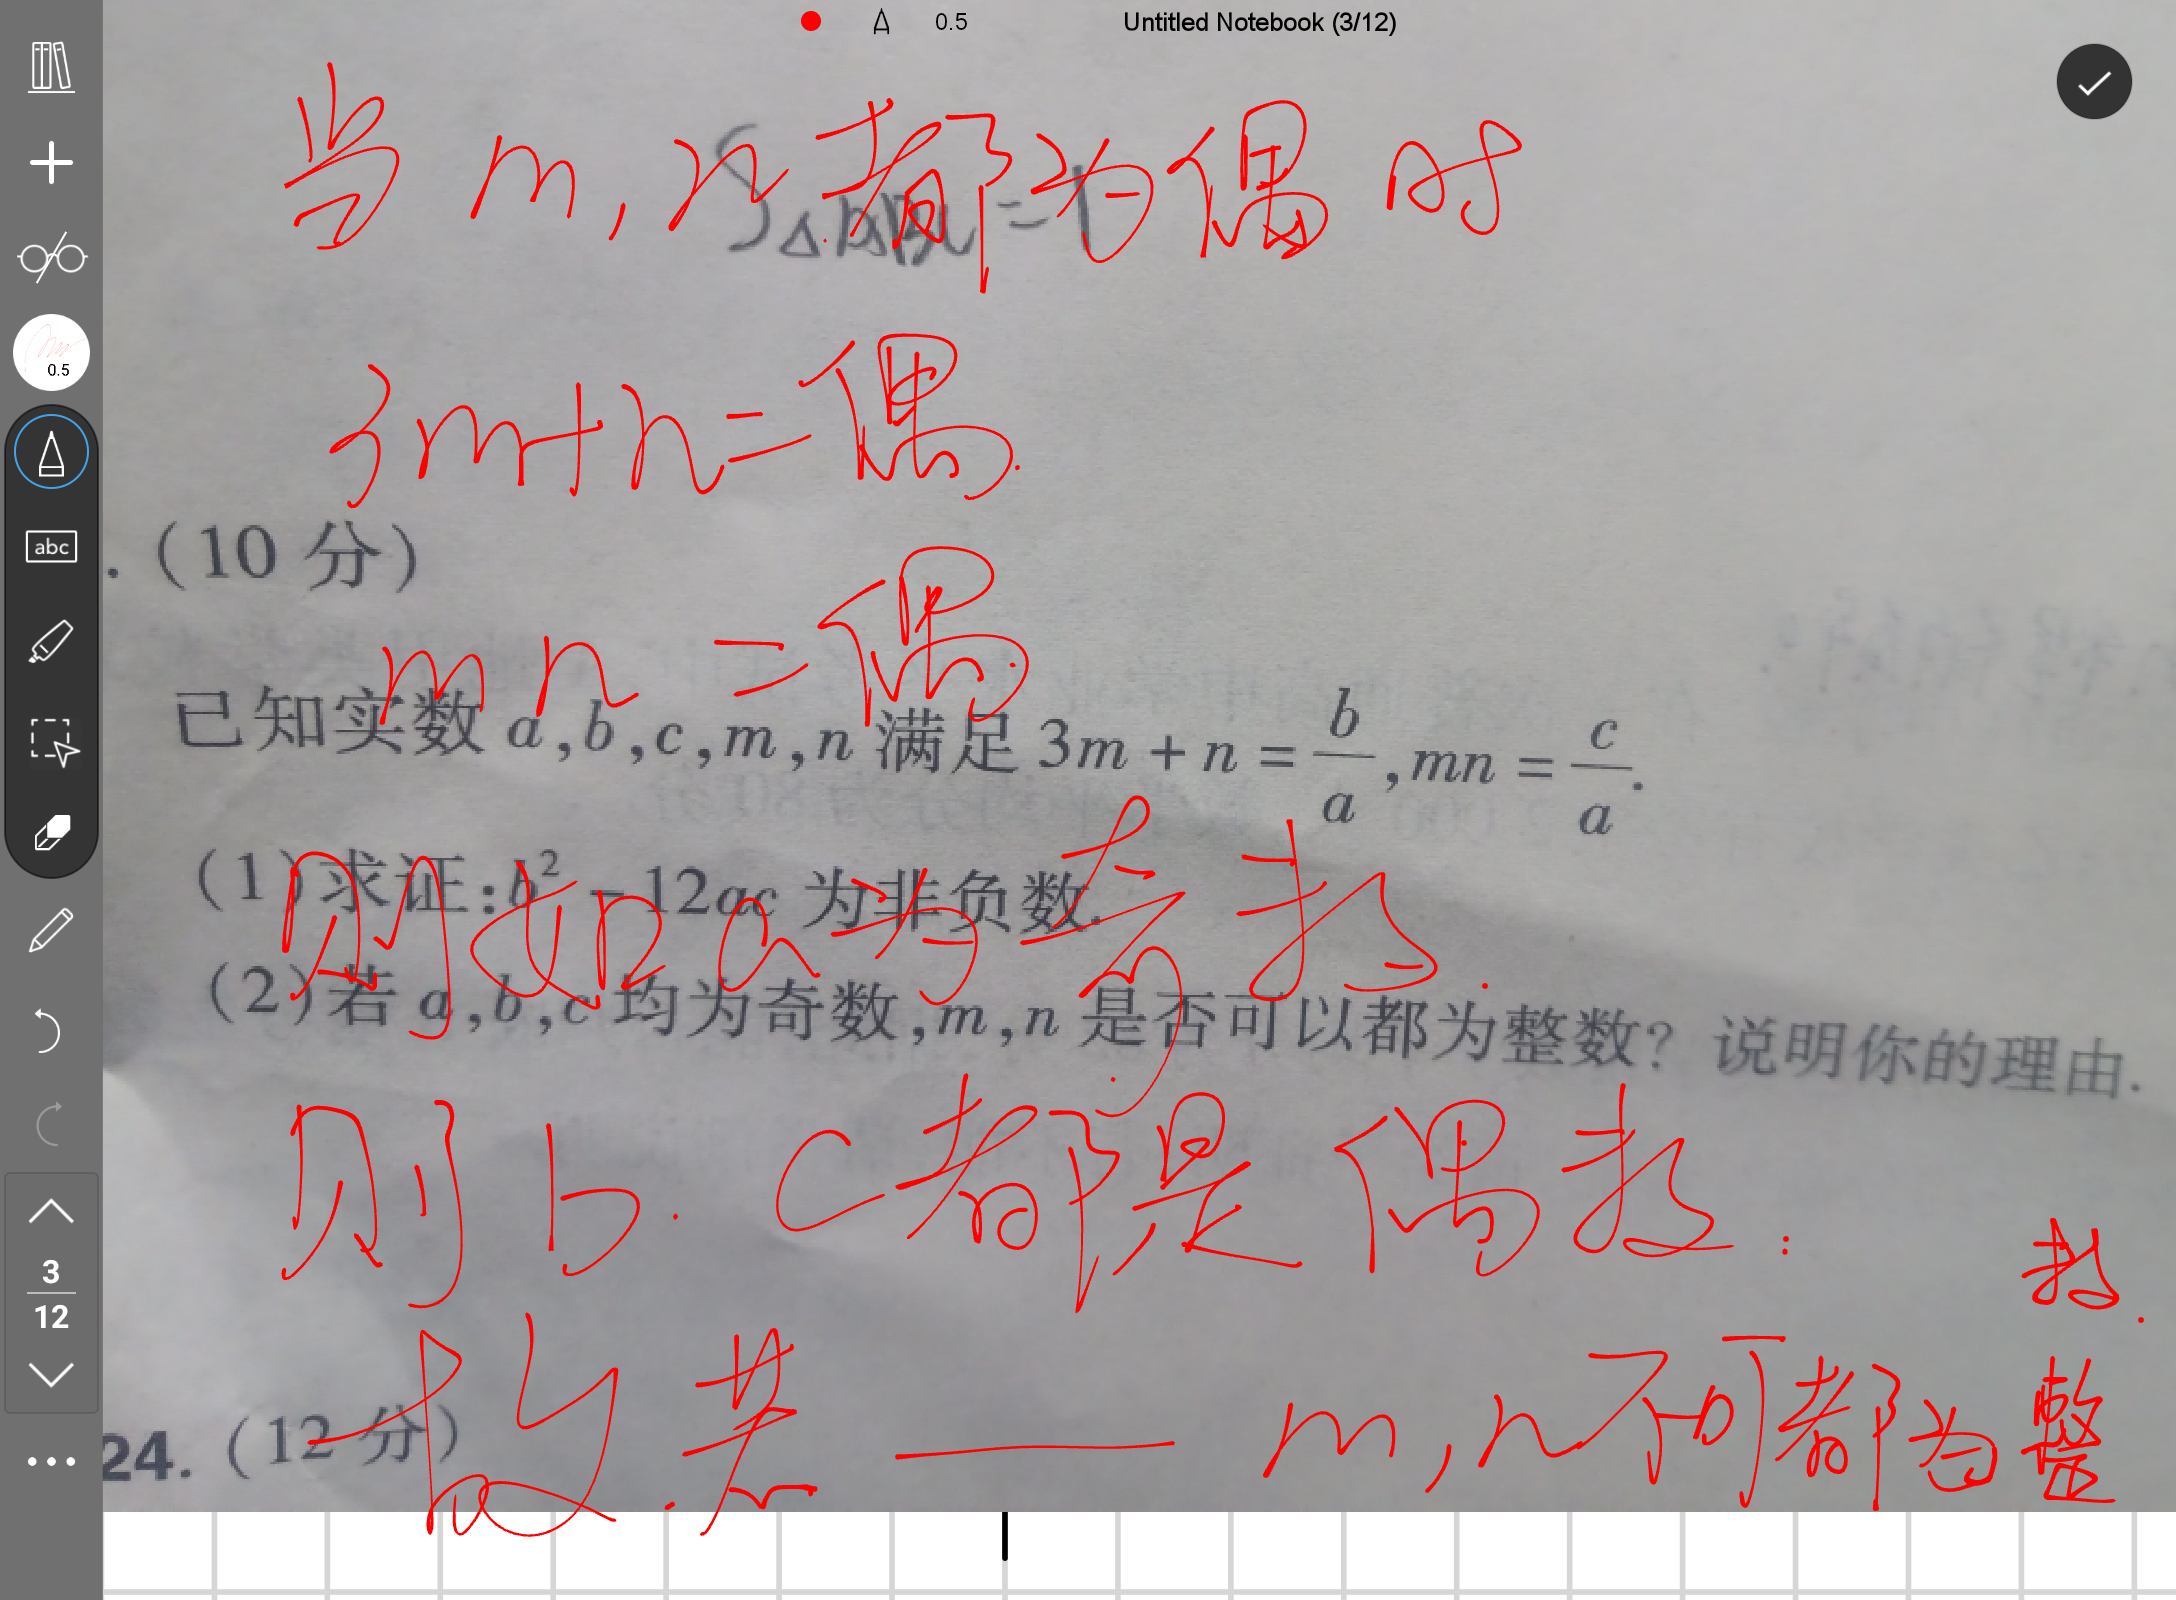 0.5 Untitled Notebook (3/12)
当 m, n 都为偶时
S△ =1
3m+n=偶.
0.5
abc
.(10 分)
mn =偶.
已知实数 a,b,c,m,n 满足 3m + n = b/a ,mn = c/a.
(1)求证:b² - 12ac 为非负数.
则如 a 为奇数.
(2)若 a,b,c 均为奇数,m,n 是否可以都为整数? 说明你的理由.
则 b. c 都是偶数.
3
12
故若 —— m,n 不可都为整数.
24.(12 分)